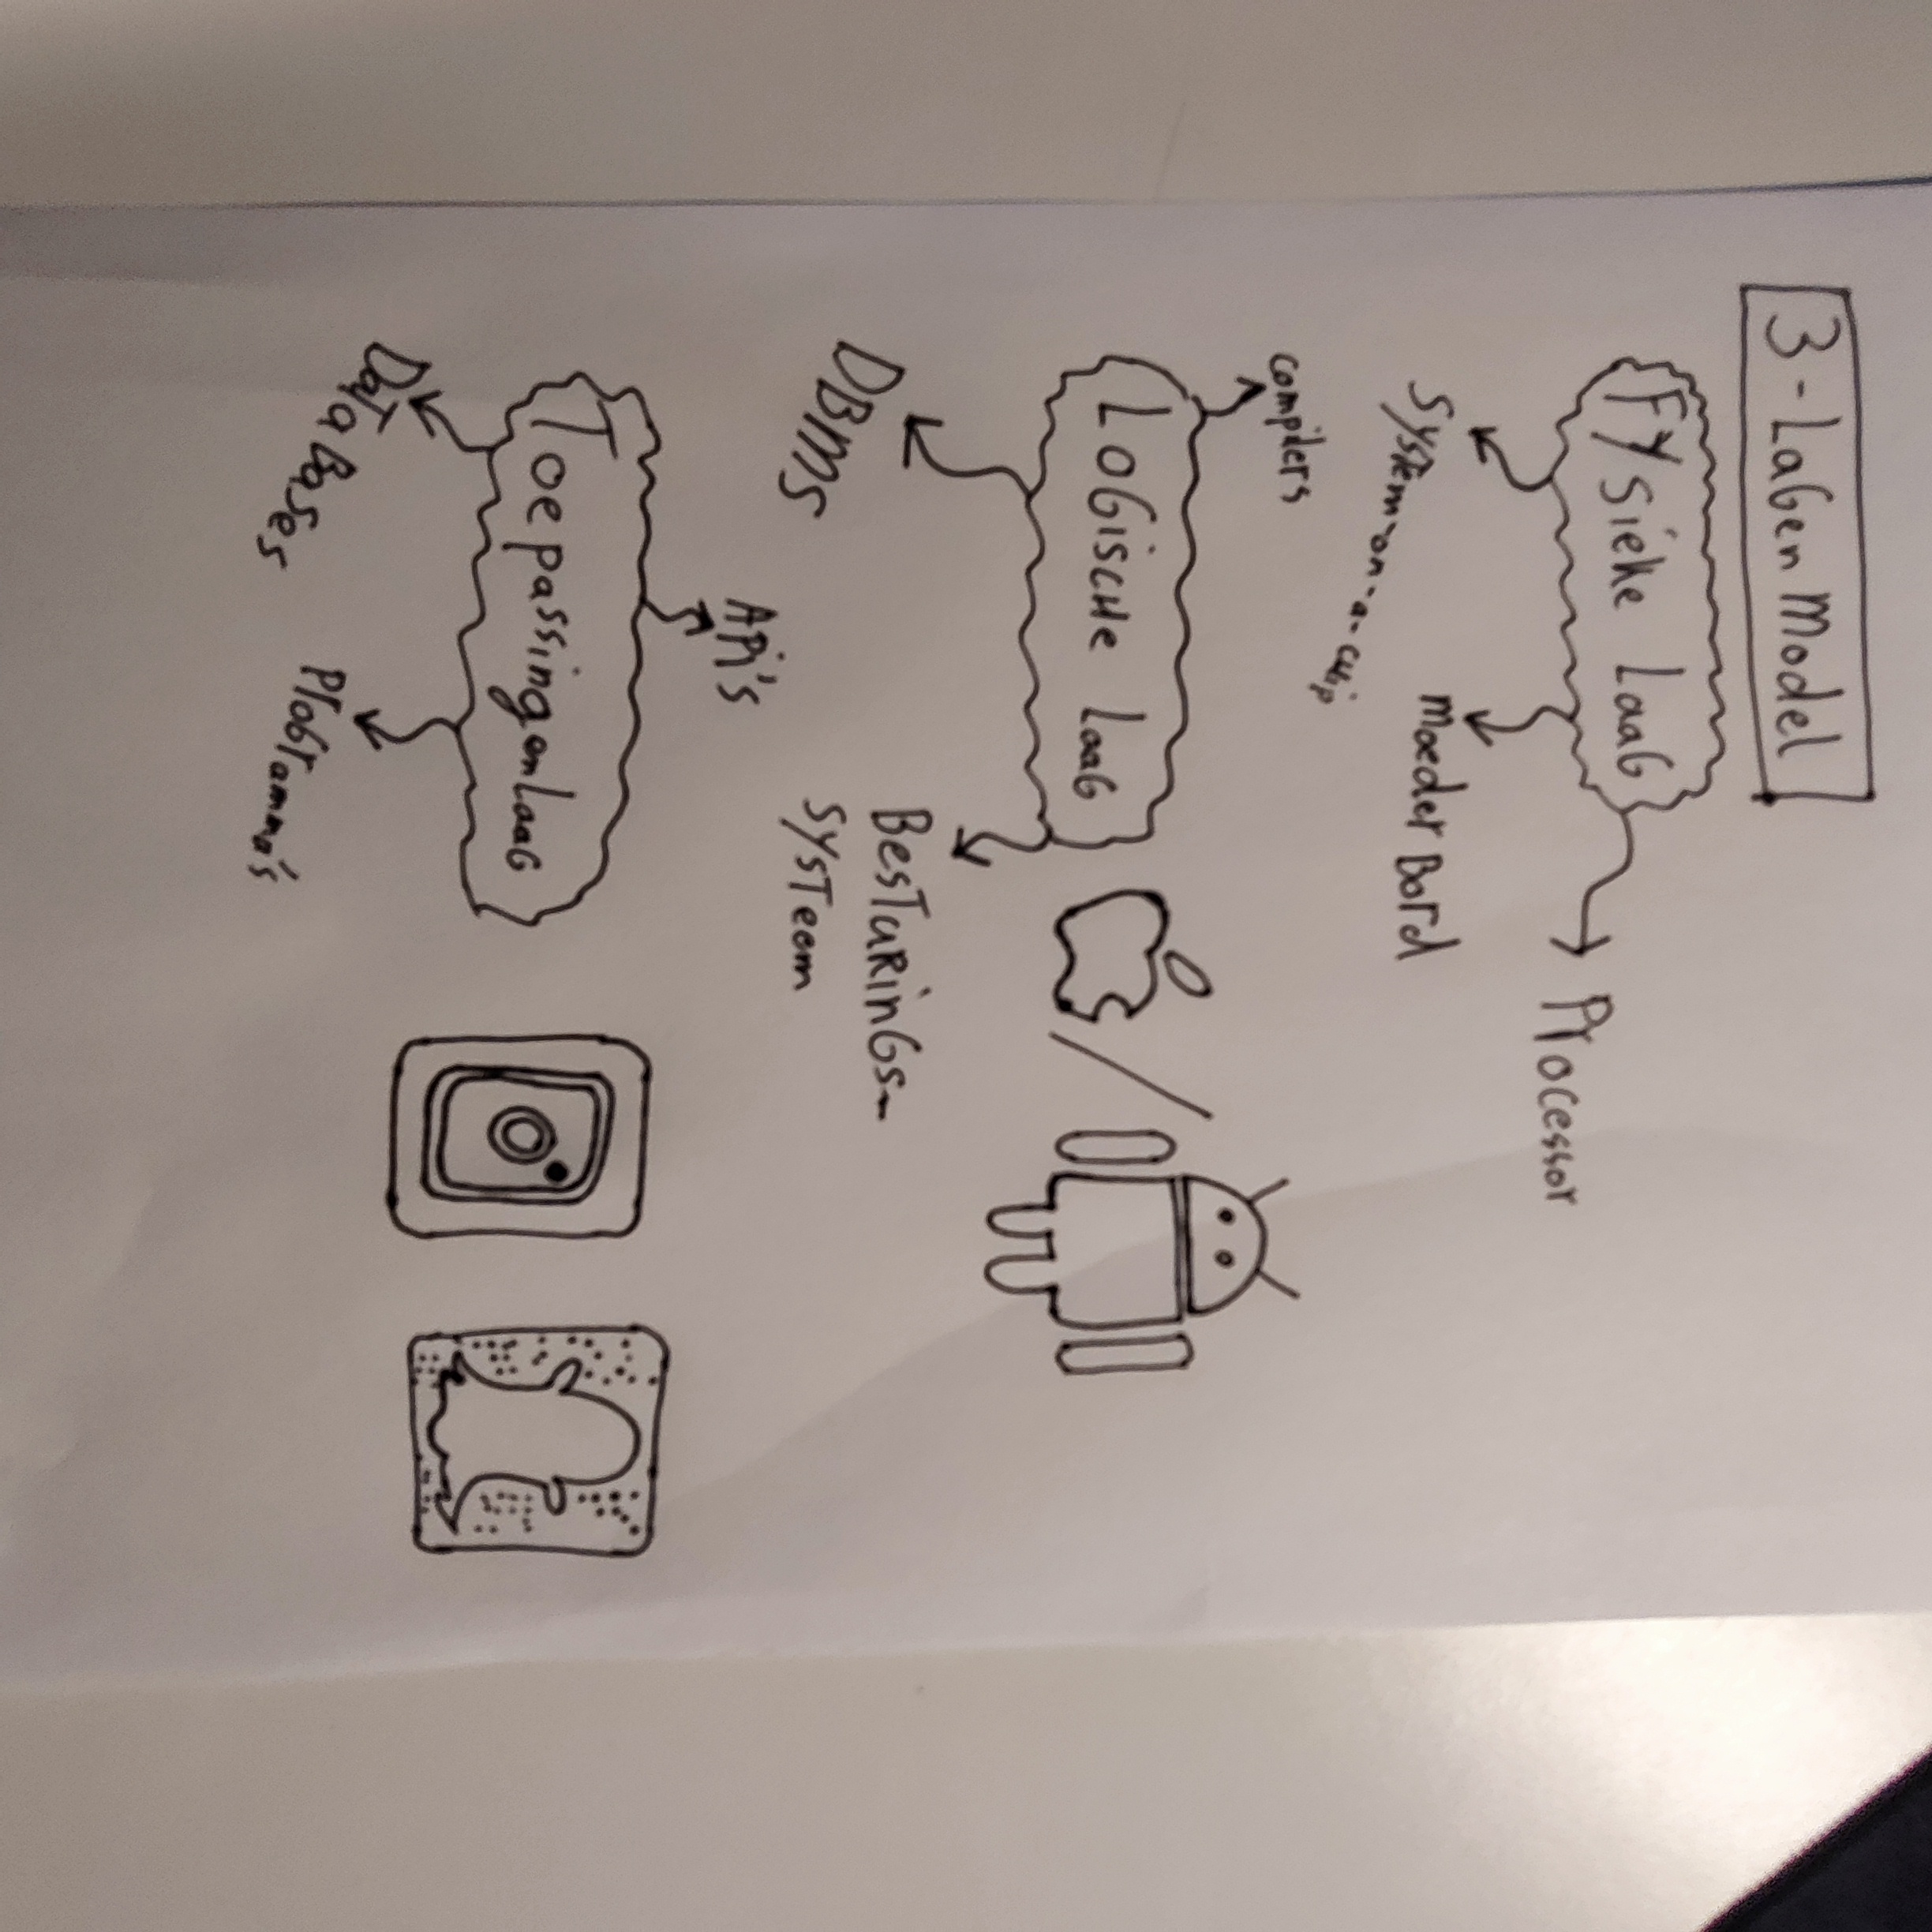 3-Lagen Model
Fysieke Laag
Processor
System-on-a-chip
moeder Bord
compilers
Logische Laag
DBMS
Besturings-
systeem
Api's
Toepassingenlaag
DataBases
Programma's